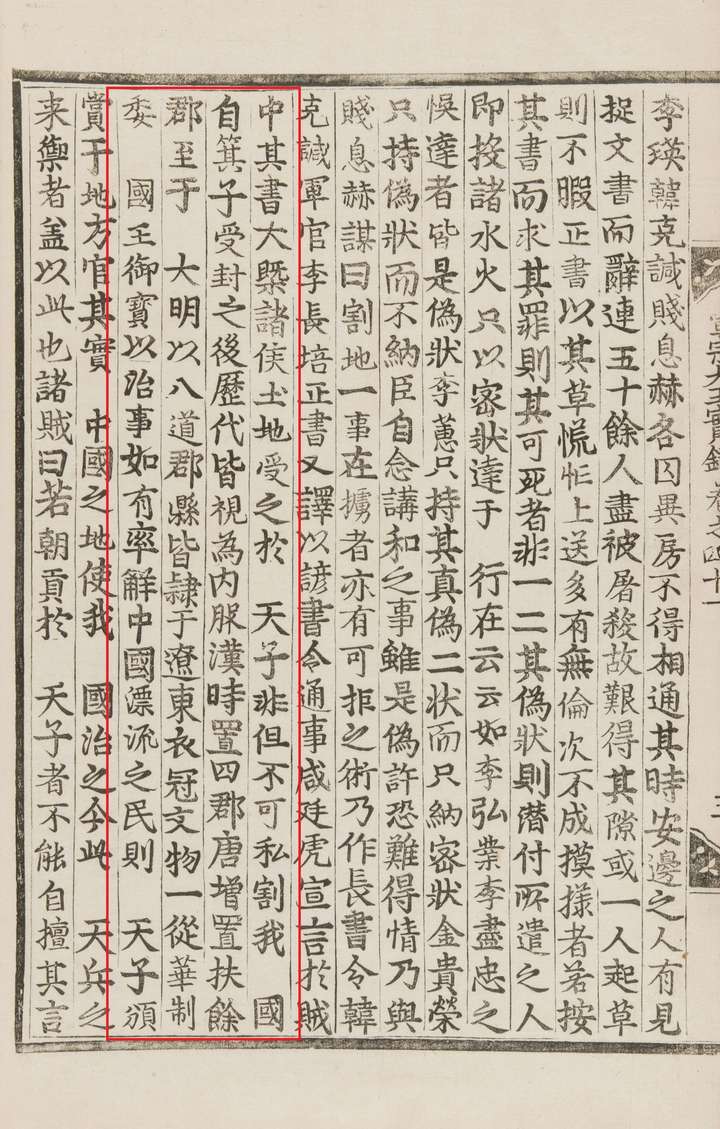 李瑛韓克諴賤息赫各囚異房不得相通其時安邊之人有見
捉文書而辭連五十餘人盡被屠殺故艱得其隙或一人起草
則不暇正書以其草慌忙上送多有無倫次不成摸㨾者若按
其書而求其罪則其可死者非一二其偽狀則潛付所遣之人
即投諸水火只以密狀達于 行在云云如李弘業李盡忠之
悞達者皆是偽狀李蕙只持其真偽二狀而只納密狀金貴榮
只持偽狀而不納臣自念講和之事雖是偽許恐難得情乃與
賤息赫謀曰割地一事在擄者亦有可拒之術乃作長書令韓
克諴軍官李長培正書又譯以諺書令通事咸廷虎宣言於賊
中其書大槩諸侯土地受之於 天子非但不可私割我 國
自箕子受封之後歷代皆視為內服漢時置四郡唐增置扶餘
郡至于 大明以八道郡縣皆隷于遼東衣冠文物一從華制
委 國王御寶以治事如有率解中國漂流之民則 天子頒
賞于地方官其實 中國之地使我 國治之今此 天兵之
来禦者盖以此也諸賊曰若朝貢於 天子者不能自擅其言